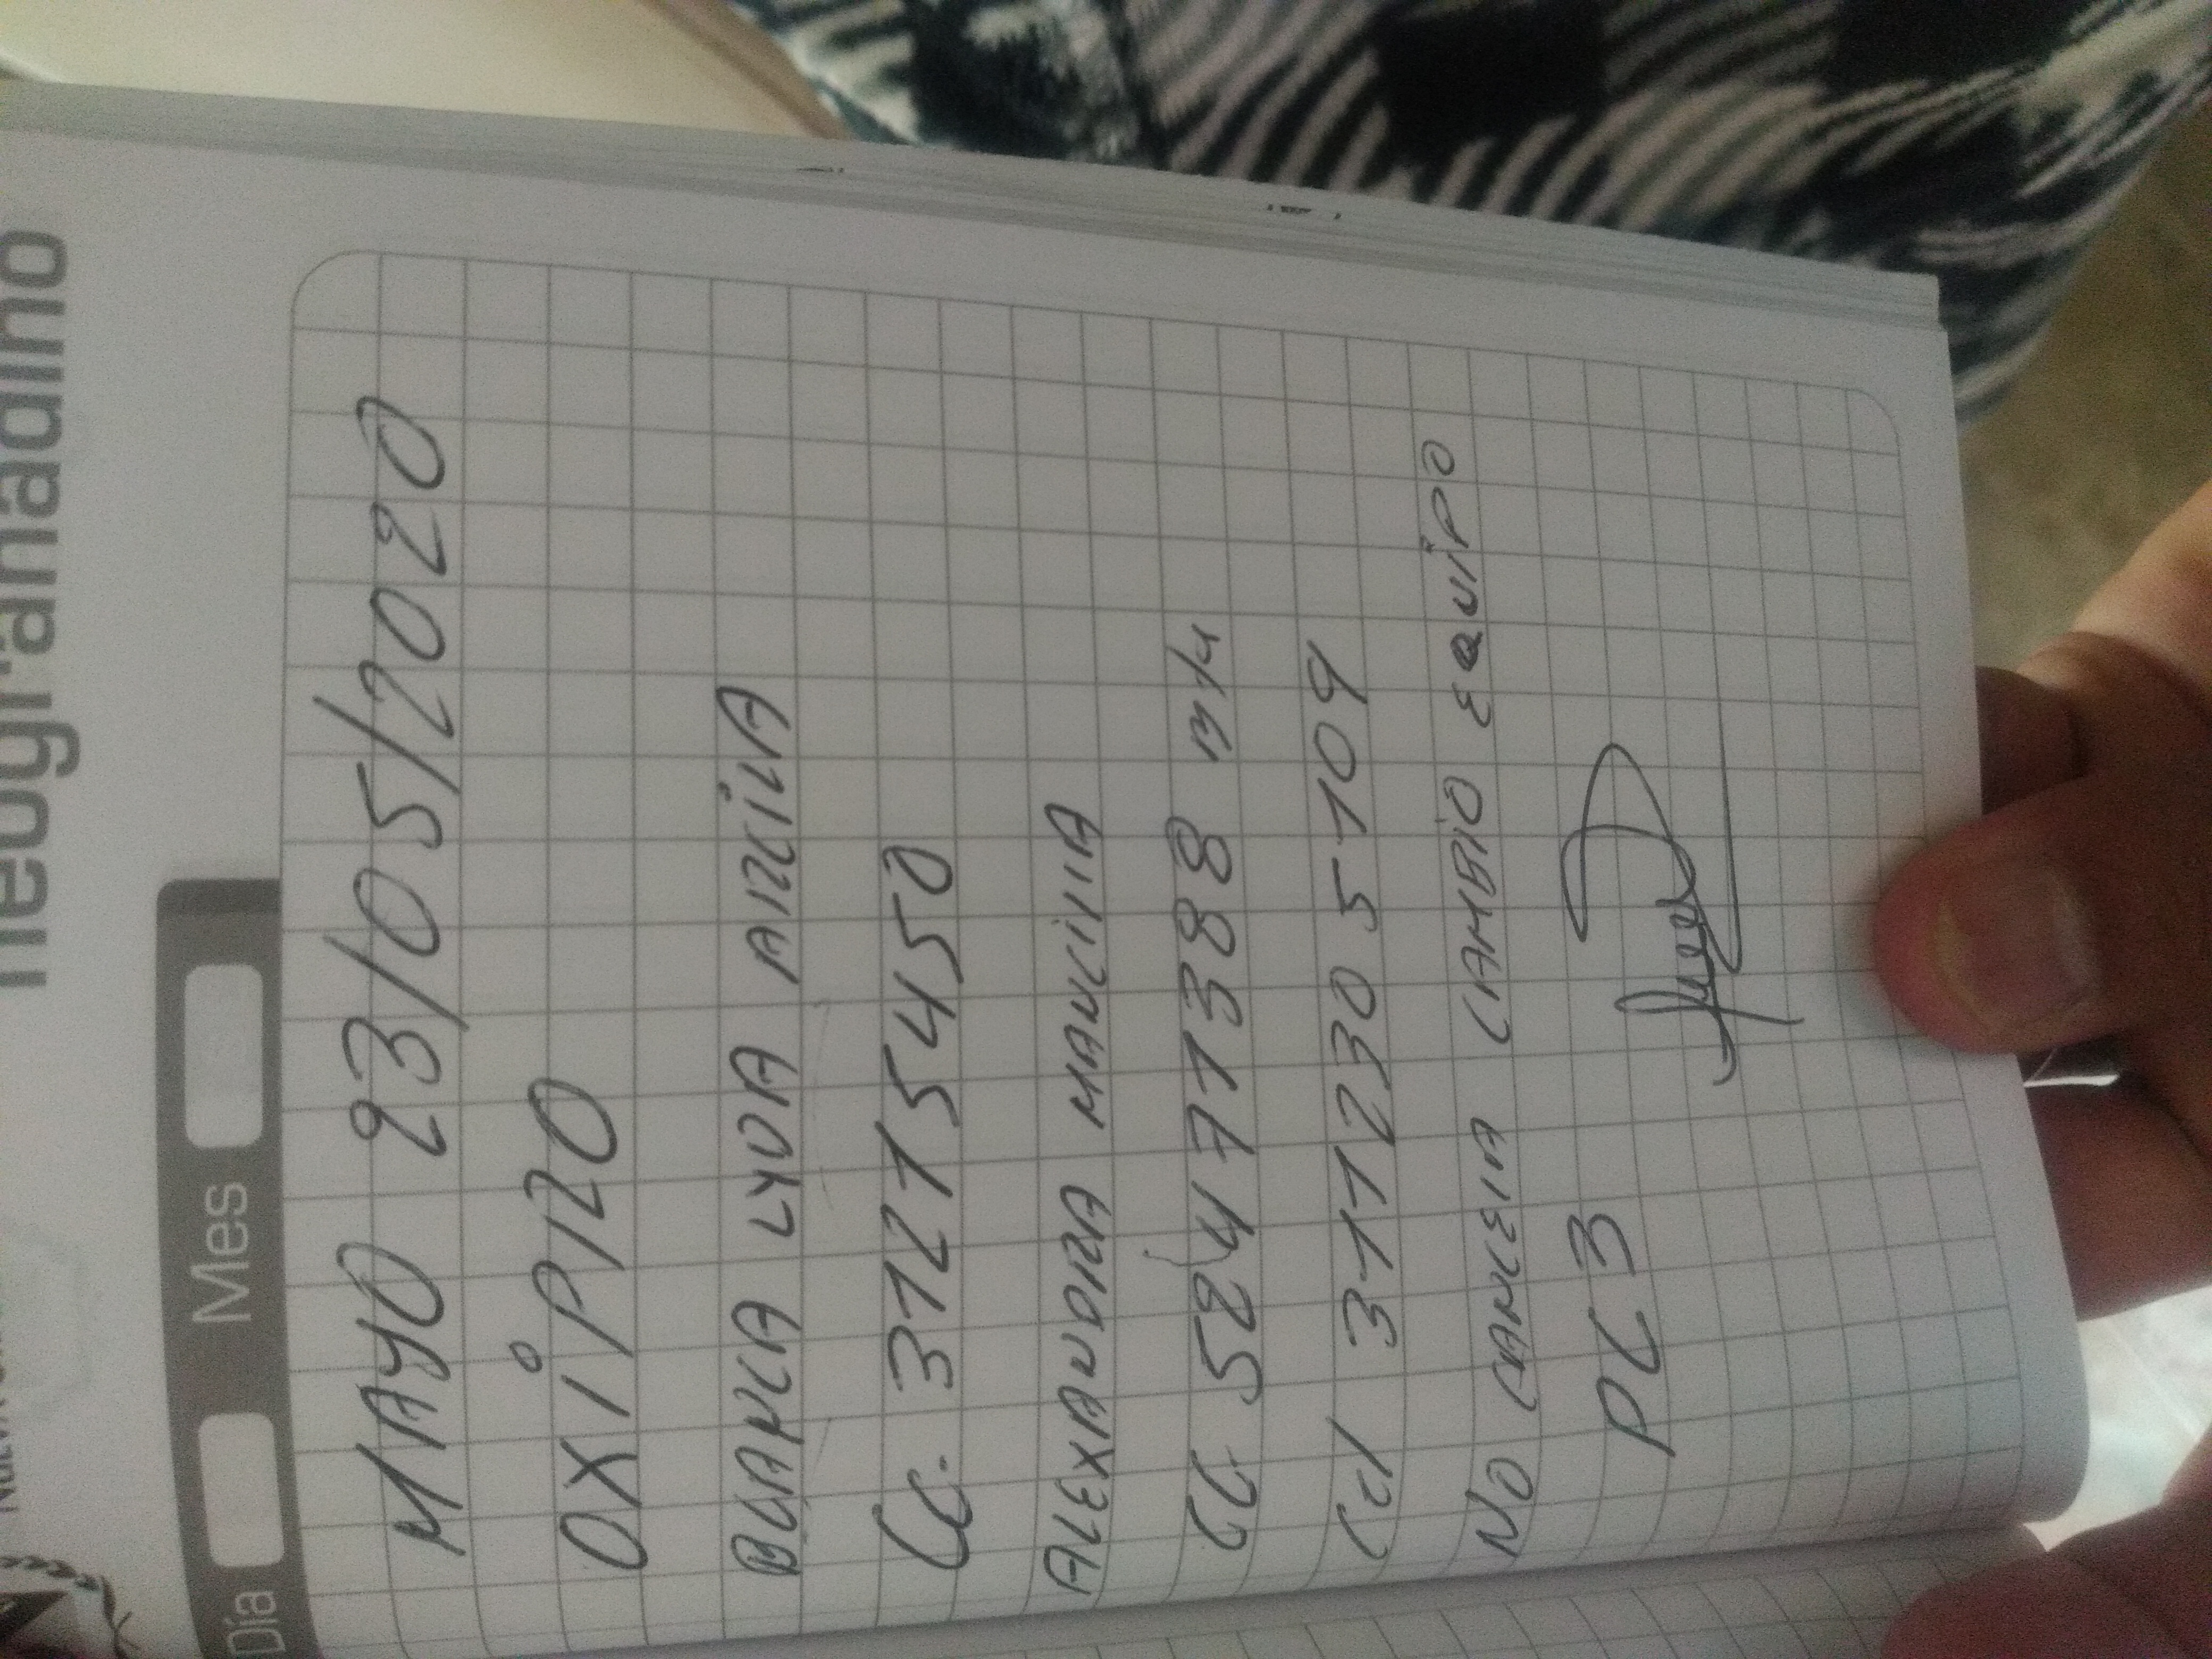 neogranadino
Día Mes
MAYO 23/05/2020
OXIPRO
BLANCA LYDA ARCILA
CC. 321 5 4 5 0
ALEXANDRA MANCILLA
CC 52471388 B/4
Cel 311 230 5109
NO CANCELA CAMBIO EQUIPO
PC 3